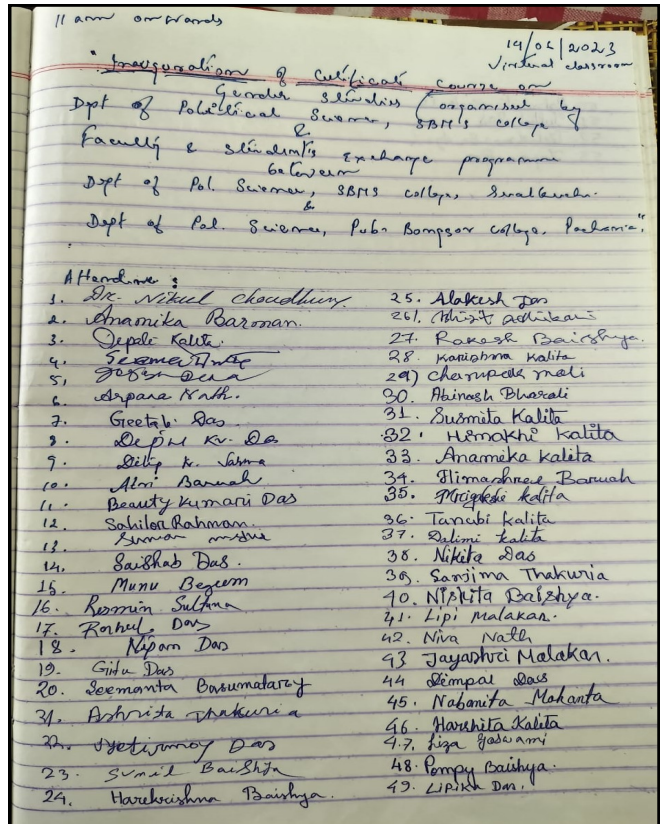 11 am onwards
19/06/2023
Virtual classroom
"Inauguration of Certificate course on
Gender Studies (organised by
Dept of Political Science, SBMS college
&
Faculty & Students Exchange programme
between
Dept of Pol. Science, SBMS college, Sualkuchi.
&
Dept of Pol. Science, Pub- Bongsor college, Pacharia."
Attendance :
1. Dr. Nikul Choudhury.
2. Anamika Barman.
3. Depali Kalita
4.
5,
6. Arpana Nath.
7. Geetali Das
8. Dipu Kr. Das
9. Dilip Kr. Sarma
10. Almi Baruah
11. Beauty Kumari Das
12. Sahilor Rahman.
13. Suman
14. Saishab Das.
15. Munu Begum
16. Resmin Sultana
17. Rahul Das
18. Nipam Das
19. Gitu Das
20. Seemanta Basumatary
31. Ashrita Thakuria
22. Jyotirmoy Das
23. Sunil Baishya
24. Harekrishna Baishya.
25. Alakesh Das
26). Adhikari
27. Rakesh Baishya.
28. Karishma Kalita
29) Champak mali
30. Abinash Bharali
31. Susmita Kalita
32. Himakhi Kalita
33. Anamika Kalita
34. Himashree Baruah
35. Mrigakshi Kalita
36. Tanubi Kalita
37. Dalimi Kalita
38. Nikita Das
39. Sanjima Thakuria
40. Nishita Baishya.
41. Lipi Malakar.
42. Niva Nath
43 Jayashri Malakar.
44 Dimpal Das
45. Nabanita Mahanta
46. Harshita Kalita
47. Liza Goswami
48. Pompy Baishya.
49. Lipika Das.